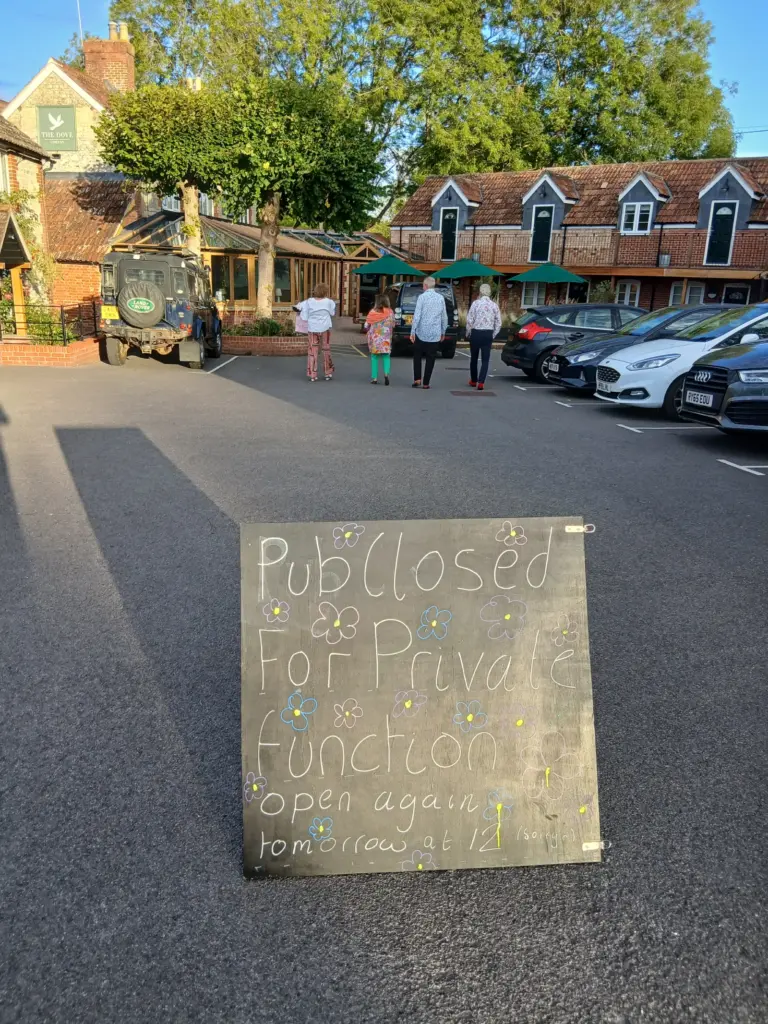 THE DOVE
LAND ROVER
RY65 EDU
Pub Closed
For Private
function
open again
tomorrow at 12 (sorry)